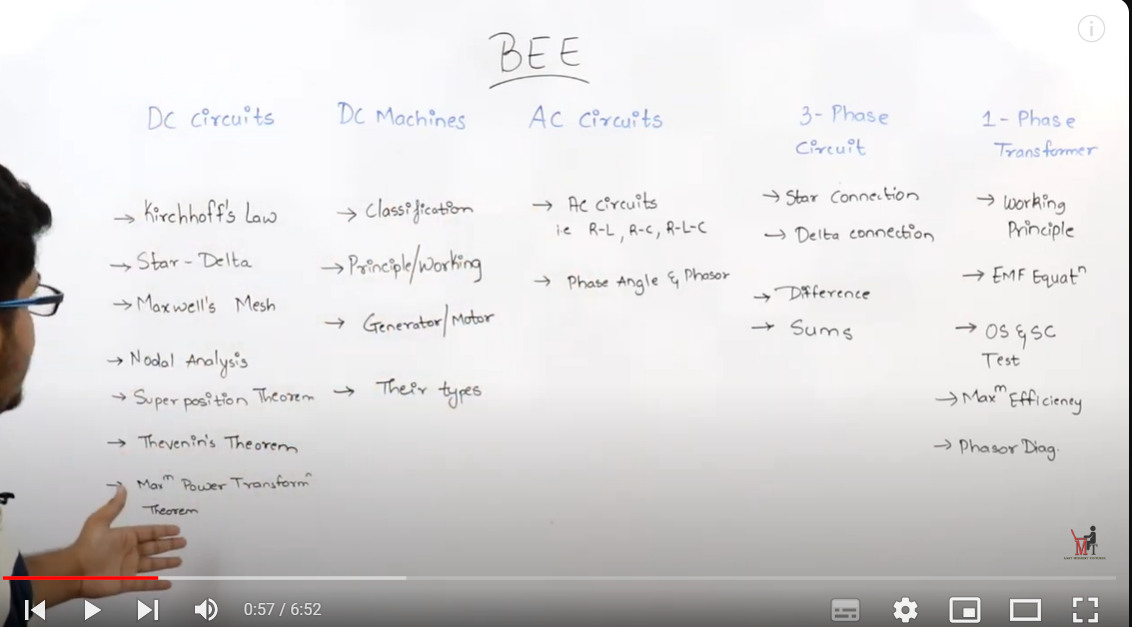 BEE
DC Circuits
→ Kirchhoff's Law
→ Star-Delta
→ Maxwell's Mesh
→ Nodal Analysis
→ Superposition Theorem
→ Thevenin's Theorem
→ Maxm Power Transformn
Theorem
DC Machines
→ Classification
→ Principle/Working
→ Generator/Motor
→ Their types
AC Circuits
→ AC circuits
i.e R-L, R-C, R-L-C
→ Phase Angle & Phasor
3-Phase
Circuit
→ Star connection
→ Delta connection
→ Difference
→ Sums
1-Phase
Transformer
→ Working
Principle
→ EMF Equatn
→ OS & SC
Test
→ Maxm Efficiency
→ Phasor Diag.
MT
0:57 / 6:52